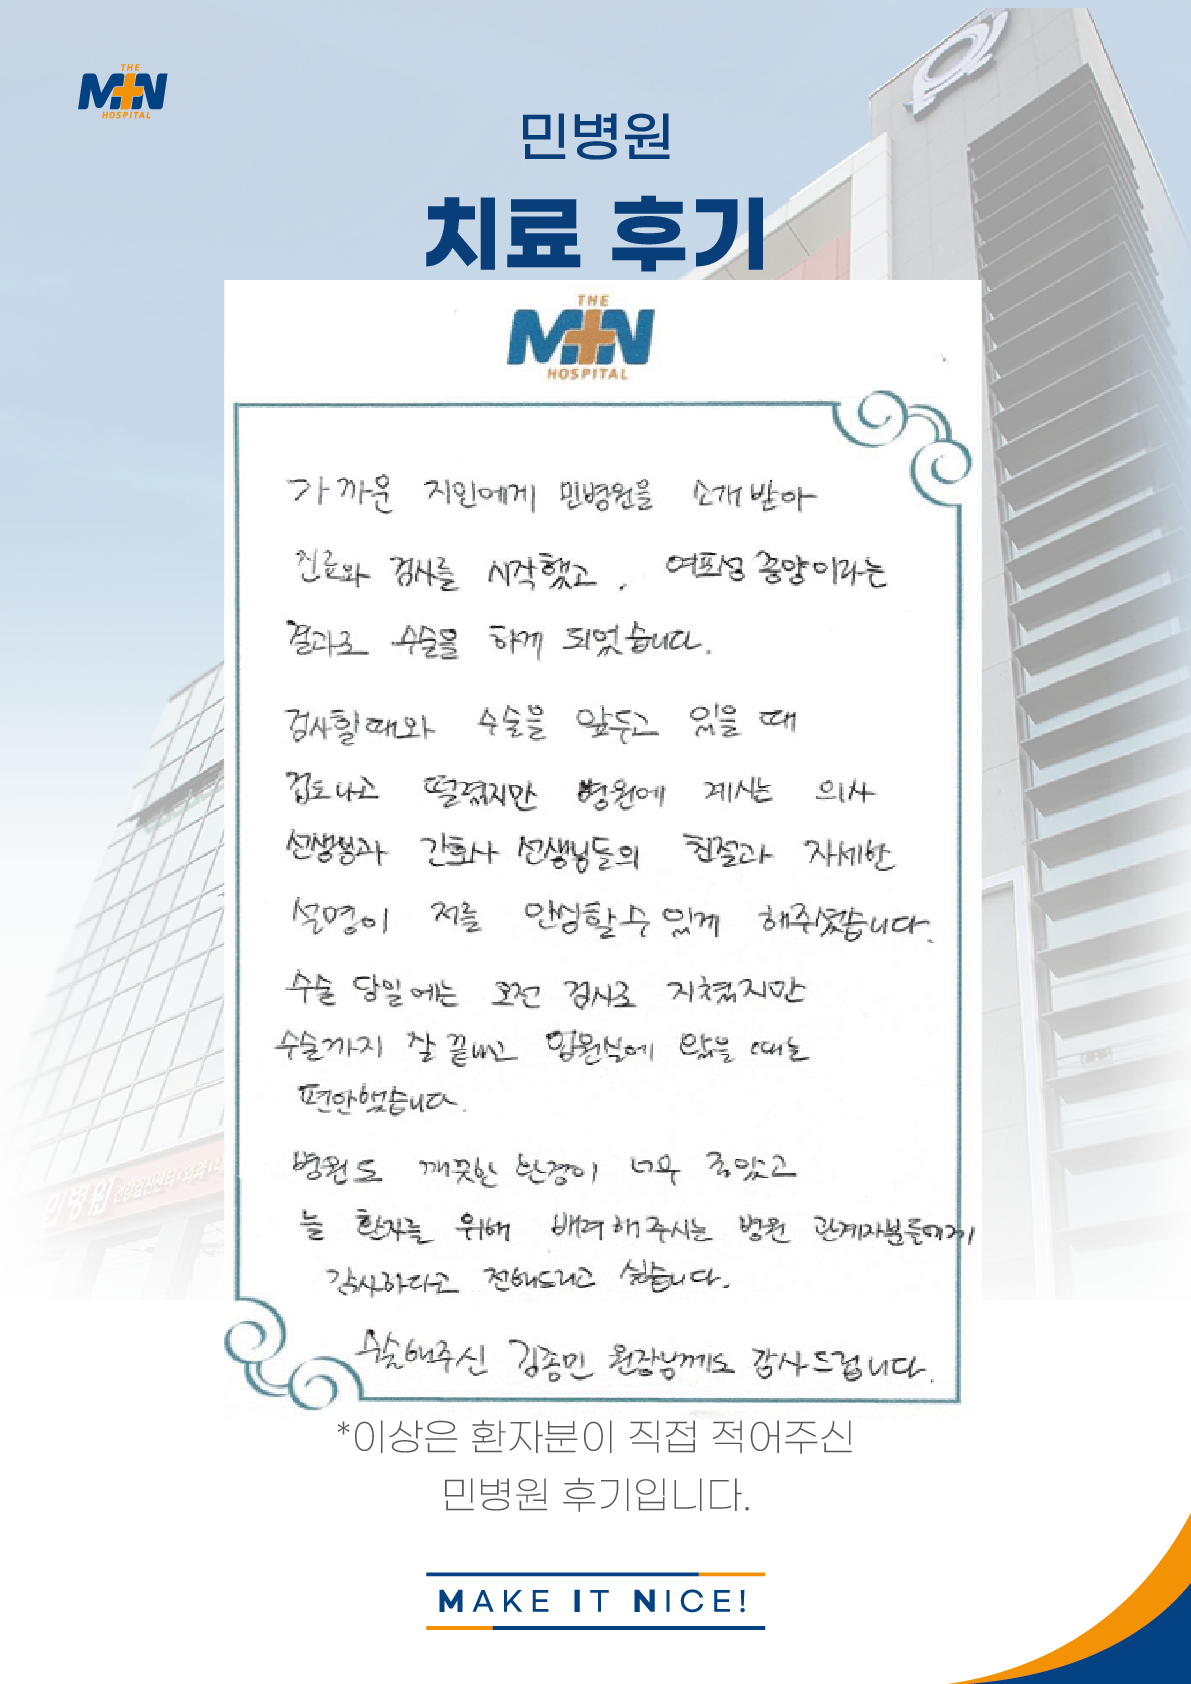 THE
MIN
HOSPITAL
민병원
치료 후기
THE
MIN
HOSPITAL
가까운 지인에게 민병원을 소개받아
진료와 검사를 시작했고, 여포성 종양이라는
결과로 수술을 하게 되었습니다.
검사할때와 수술을 앞두고 있을 때
겁도나고 떨렸지만 병원에 계시는 의사
선생님과 간호사 선생님들의 친절과 자세한
설명이 저를 안심할수 있게 해주셨습니다.
수술 당일에는 오전 검사로 지쳤지만
수술까지 잘 끝내고 입원실에 왔을 때는
편안했습니다.
병원도 깨끗한 환경이 너무 좋았고
늘 환자를 위해 배려해주시는 병원 관계자분들에게
감사하다고 전해드리고 싶습니다.
수술해주신 김종민 원장님께도 감사드립니다.
민병원
*이상은 환자분이 직접 적어주신
민병원 후기입니다.
MAKE IT NICE!